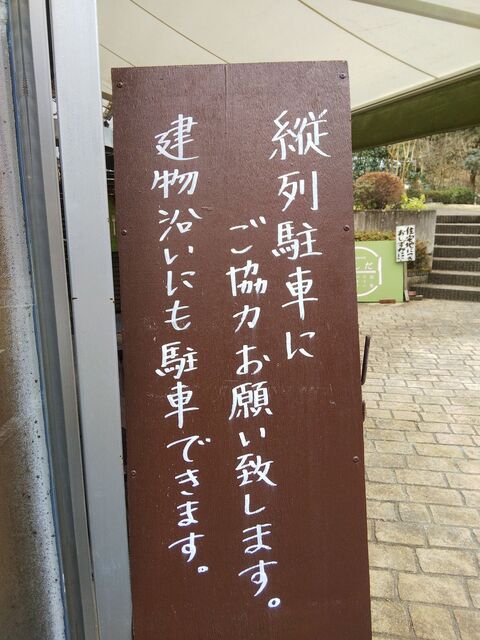 縦列駐車に
ご協力お願い致します。
建物沿いにも駐車できます。
住宅地につき
おしずかに